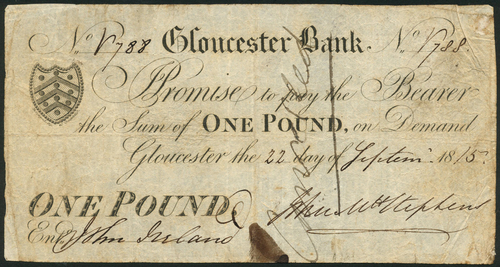 No. V788 Gloucester Bank. No. V788.
I Promise to pay the Bearer
the Sum of ONE POUND, on Demand
Gloucester the 22 day of Septem 1815.
ONE POUND
Ent. John Ireland
Cancelled